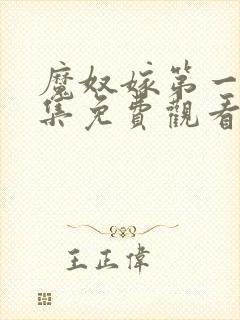 魔奴嫁第一
集免費觀看
王正偉